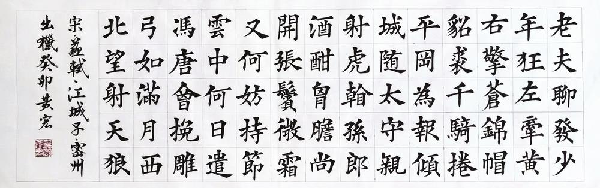 老夫聊發少
年狂左牽黃
右擎蒼錦帽
貂裘千騎捲
平岡為報傾
城隨太守親
射虎孫郎
酒酣胷膽尚
開張鬢微霜
又何妨持節
雲中何日遣
馮唐會挽雕
弓如滿月西
北望射天狼
宋蘇軾·江城子·密州
出獵癸卯黃